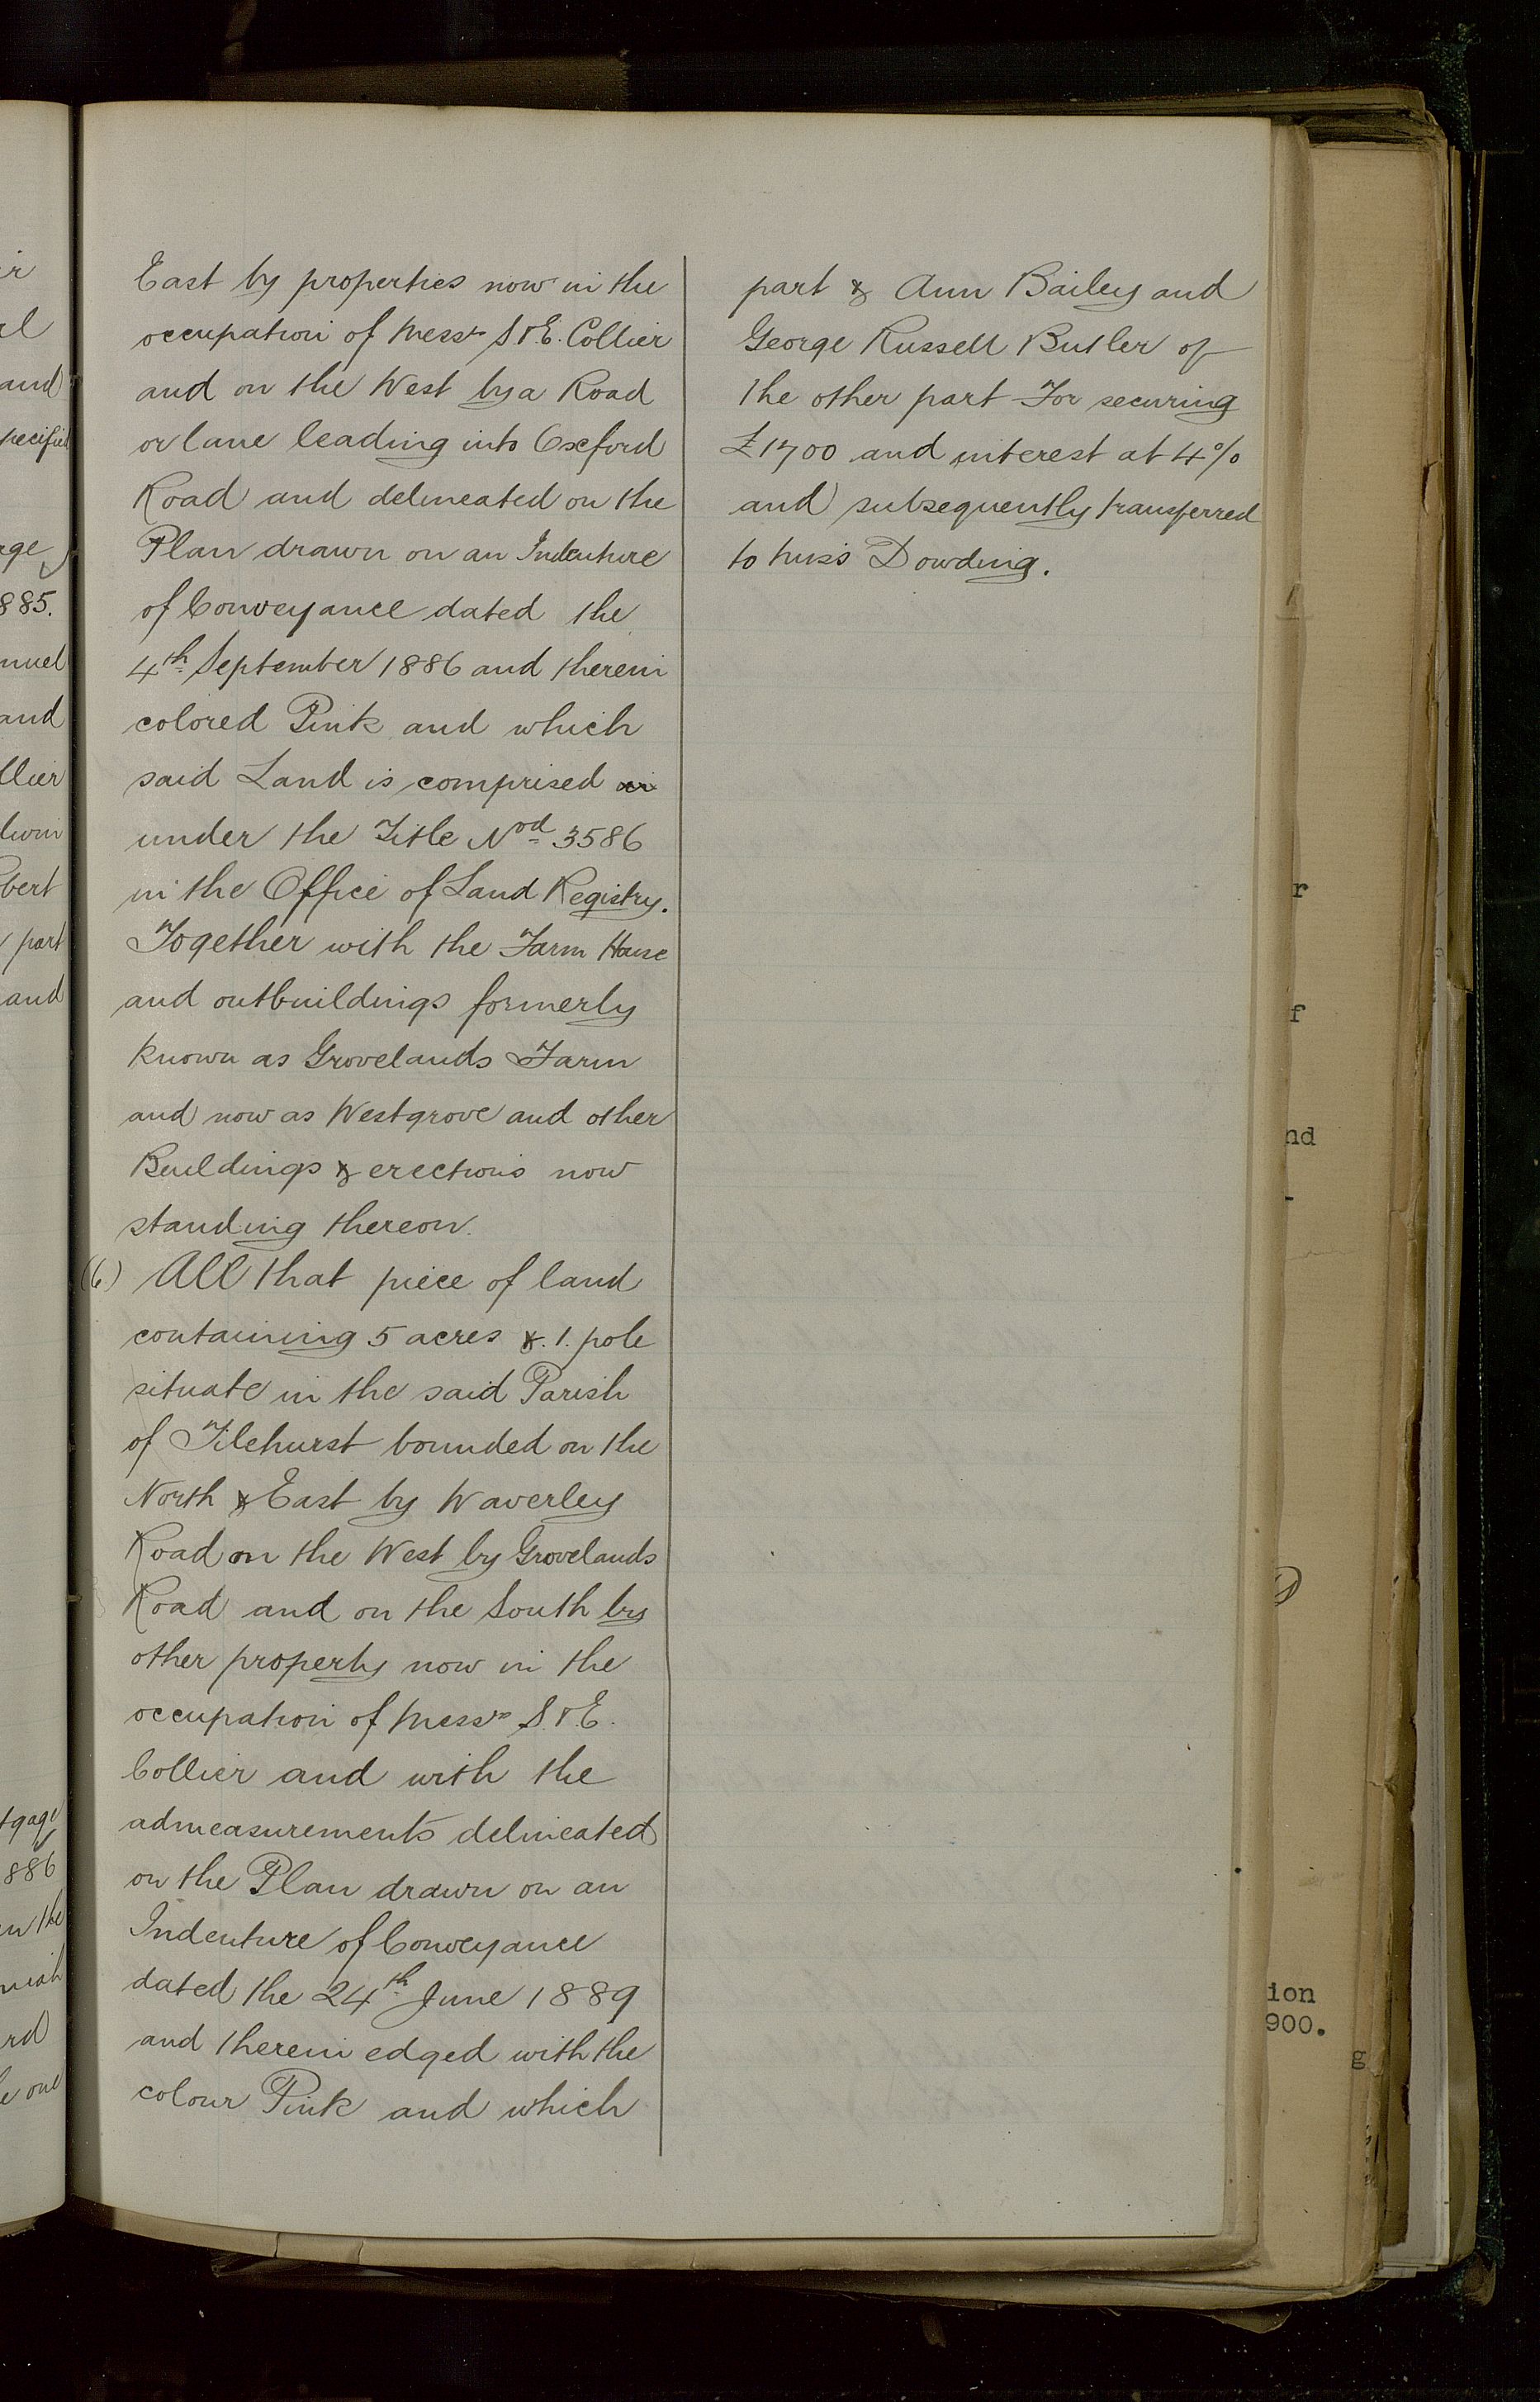 East by properties now in the
occupation of Messrs S & E. Collier
and on the West by a Road
or lane leading into Oxford
Road and delineated on the
Plan drawn on an Indenture
of Conveyance dated the
4th September 1886 and therein
colored Pink and which
said Land is comprised in
under the Title Nod 3586
in the Office of Land Registry.
Together with the Farm House
and outbuildings formerly
known as Grovelands Farm
and now as Westgrove and other
Buildings & erections now
standing thereon.
(6) All that piece of land
containing 5 acres & .1. pole
situate in the said Parish
of Tilehurst bounded on the
North & East by Waverley
Road on the West by Grovelands
Road and on the South by
other property now in the
occupation of Messrs S. & E.
Collier and with the
admeasurements delineated
on the Plan drawn on an
Indenture of Conveyance
dated the 24th June 1889
and therein edged with the
colour Pink and which
part & Ann Bailey and
George Russell Butler of
the other part For securing
£1700 and interest at 4%
and subsequently transferred
to Miss Dowding.
and
885.
and
part
and
886
ion
900.